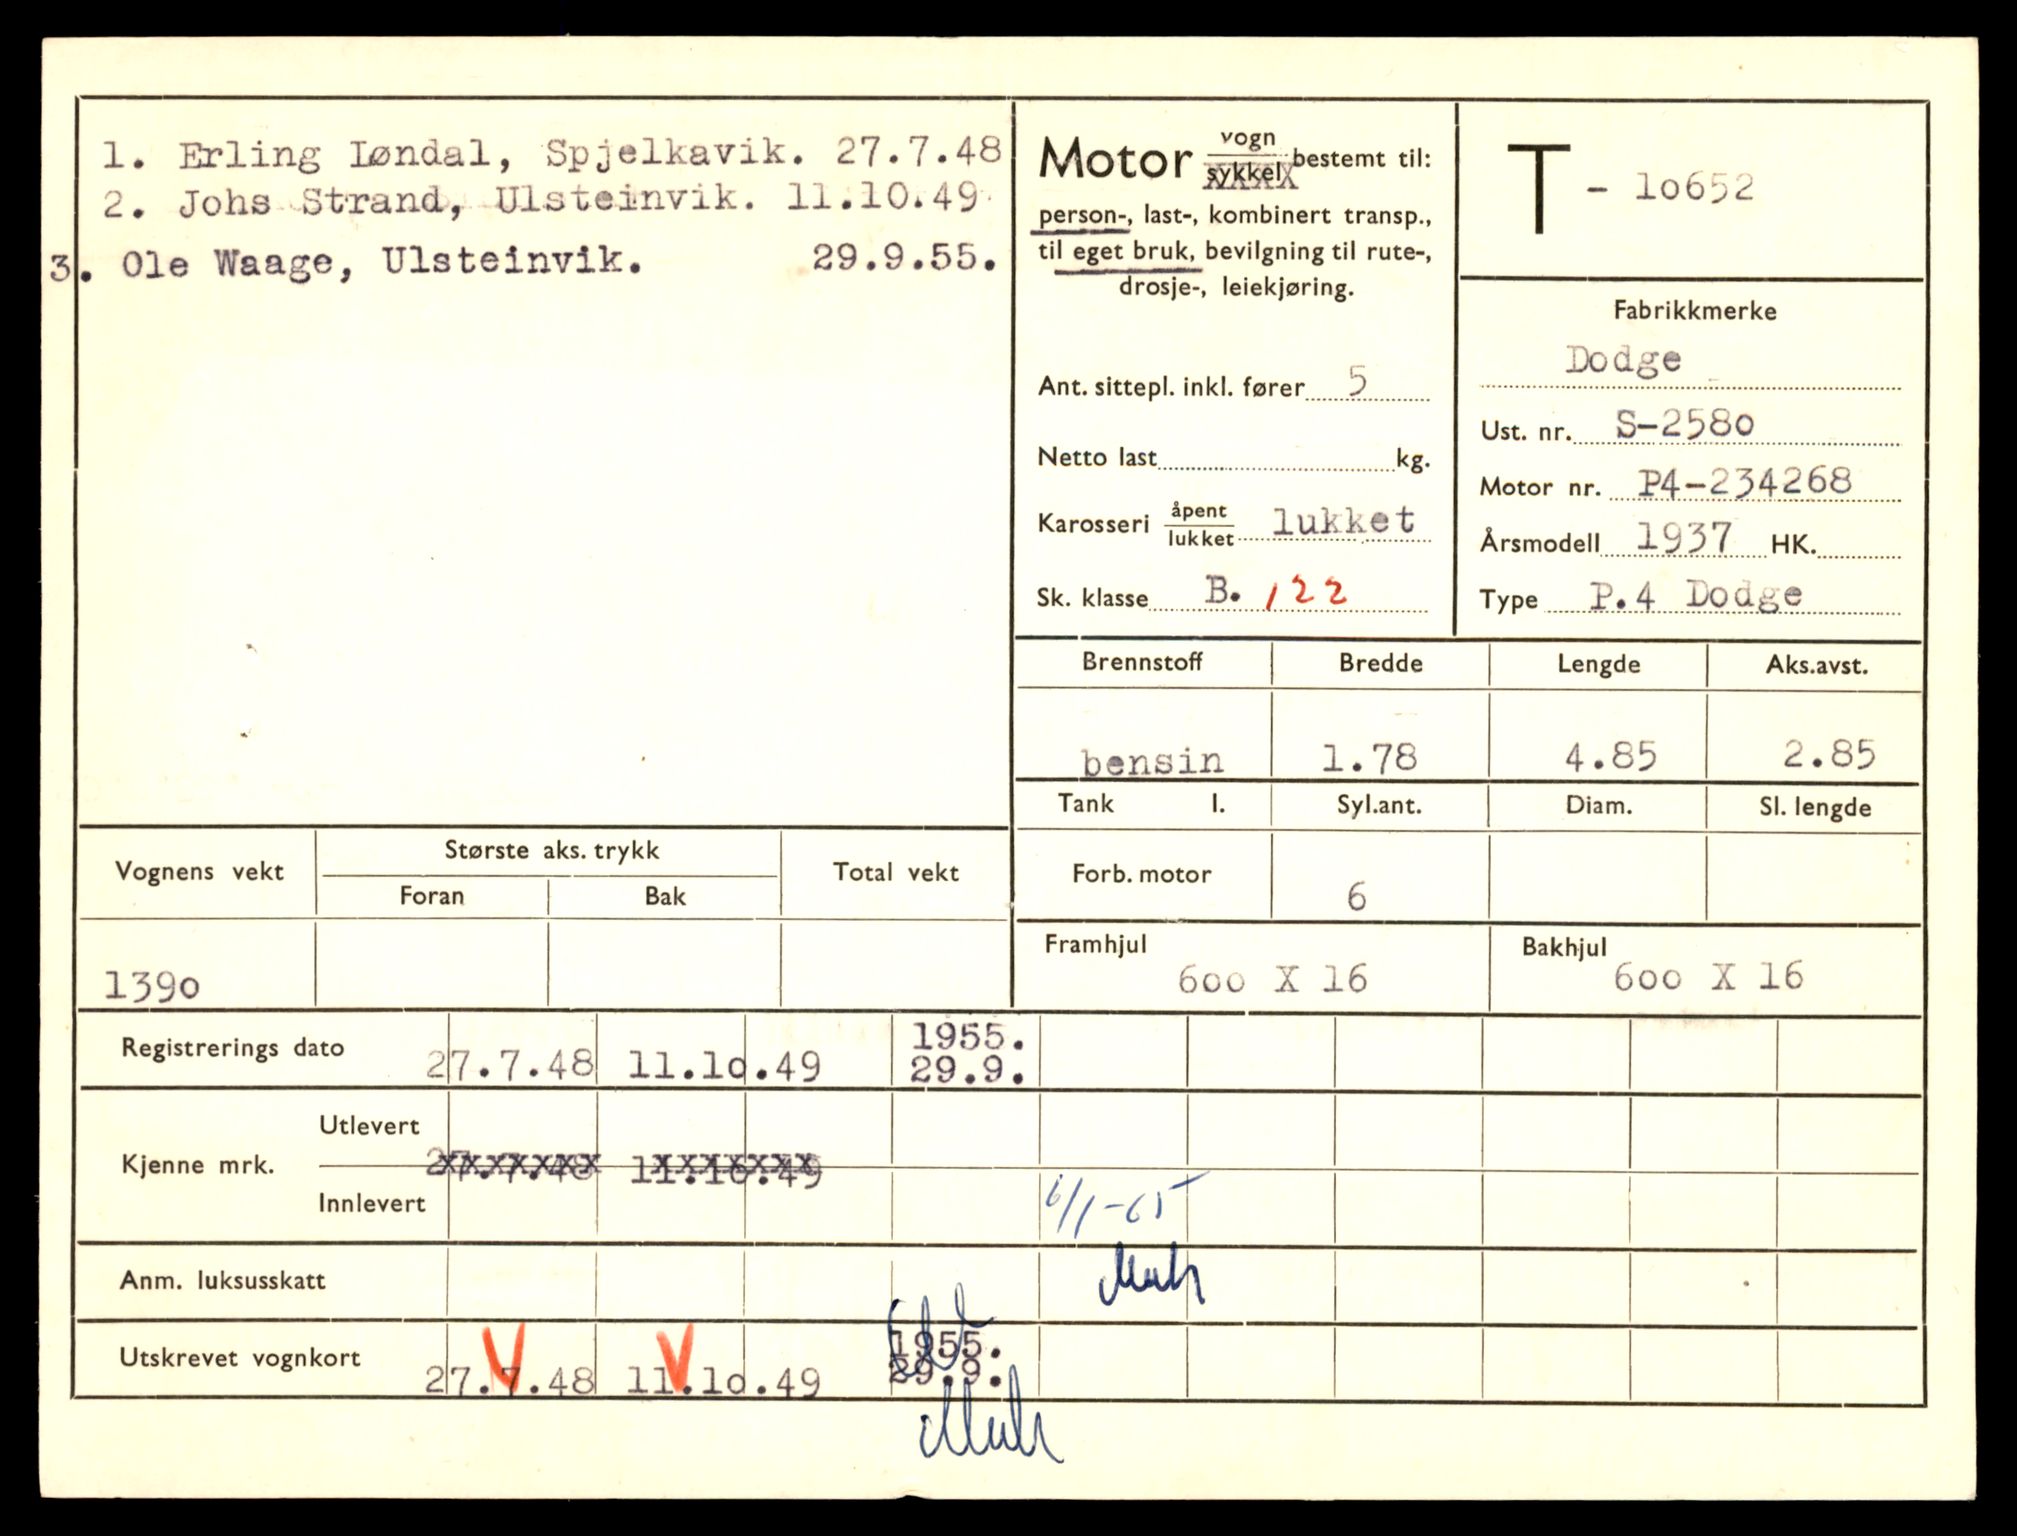 1. Erling Løndal, Spjelkavik. 27.7.48
2. Johs Strand, Ulsteinvik. 11.10.49
3. Ole Waage, Ulsteinvik. 29.9.55.
Motor vogn sykkel bestemt til:
person-, last-, kombinert transp.,
til eget bruk, bevilgning til rute-,
drosje-, leiekjøring.
Ant. sittepl. inkl. fører 5
Netto last kg.
Karosseri åpent lukket lukket
Sk. klasse B. 122
T - 10652
Fabrikkmerke
Dodge
Ust. nr. S-2580
Motor nr. P4-234268
Årsmodell 1937 HK.
Type P.4 Dodge
Brennstoff Bredde Lengde Aks.avst.
bensin 1.78 4.85 2.85
Tank l. Syl.ant. Diam. Sl. lengde
Forb. motor 6
Framhjul Bakhjul
600 X 16 600 X 16
Vognens vekt Største aks. trykk Total vekt
Foran Bak
1390
Registrerings dato 27.7.48 11.10.49 1955.
29.9.
Kjenne mrk. Utlevert
27.7.48 11.10.49
Innlevert 6/1-65
Anm. luksusskatt
Utskrevet vognkort 27.7.48 11.10.49 1955.
29.9.